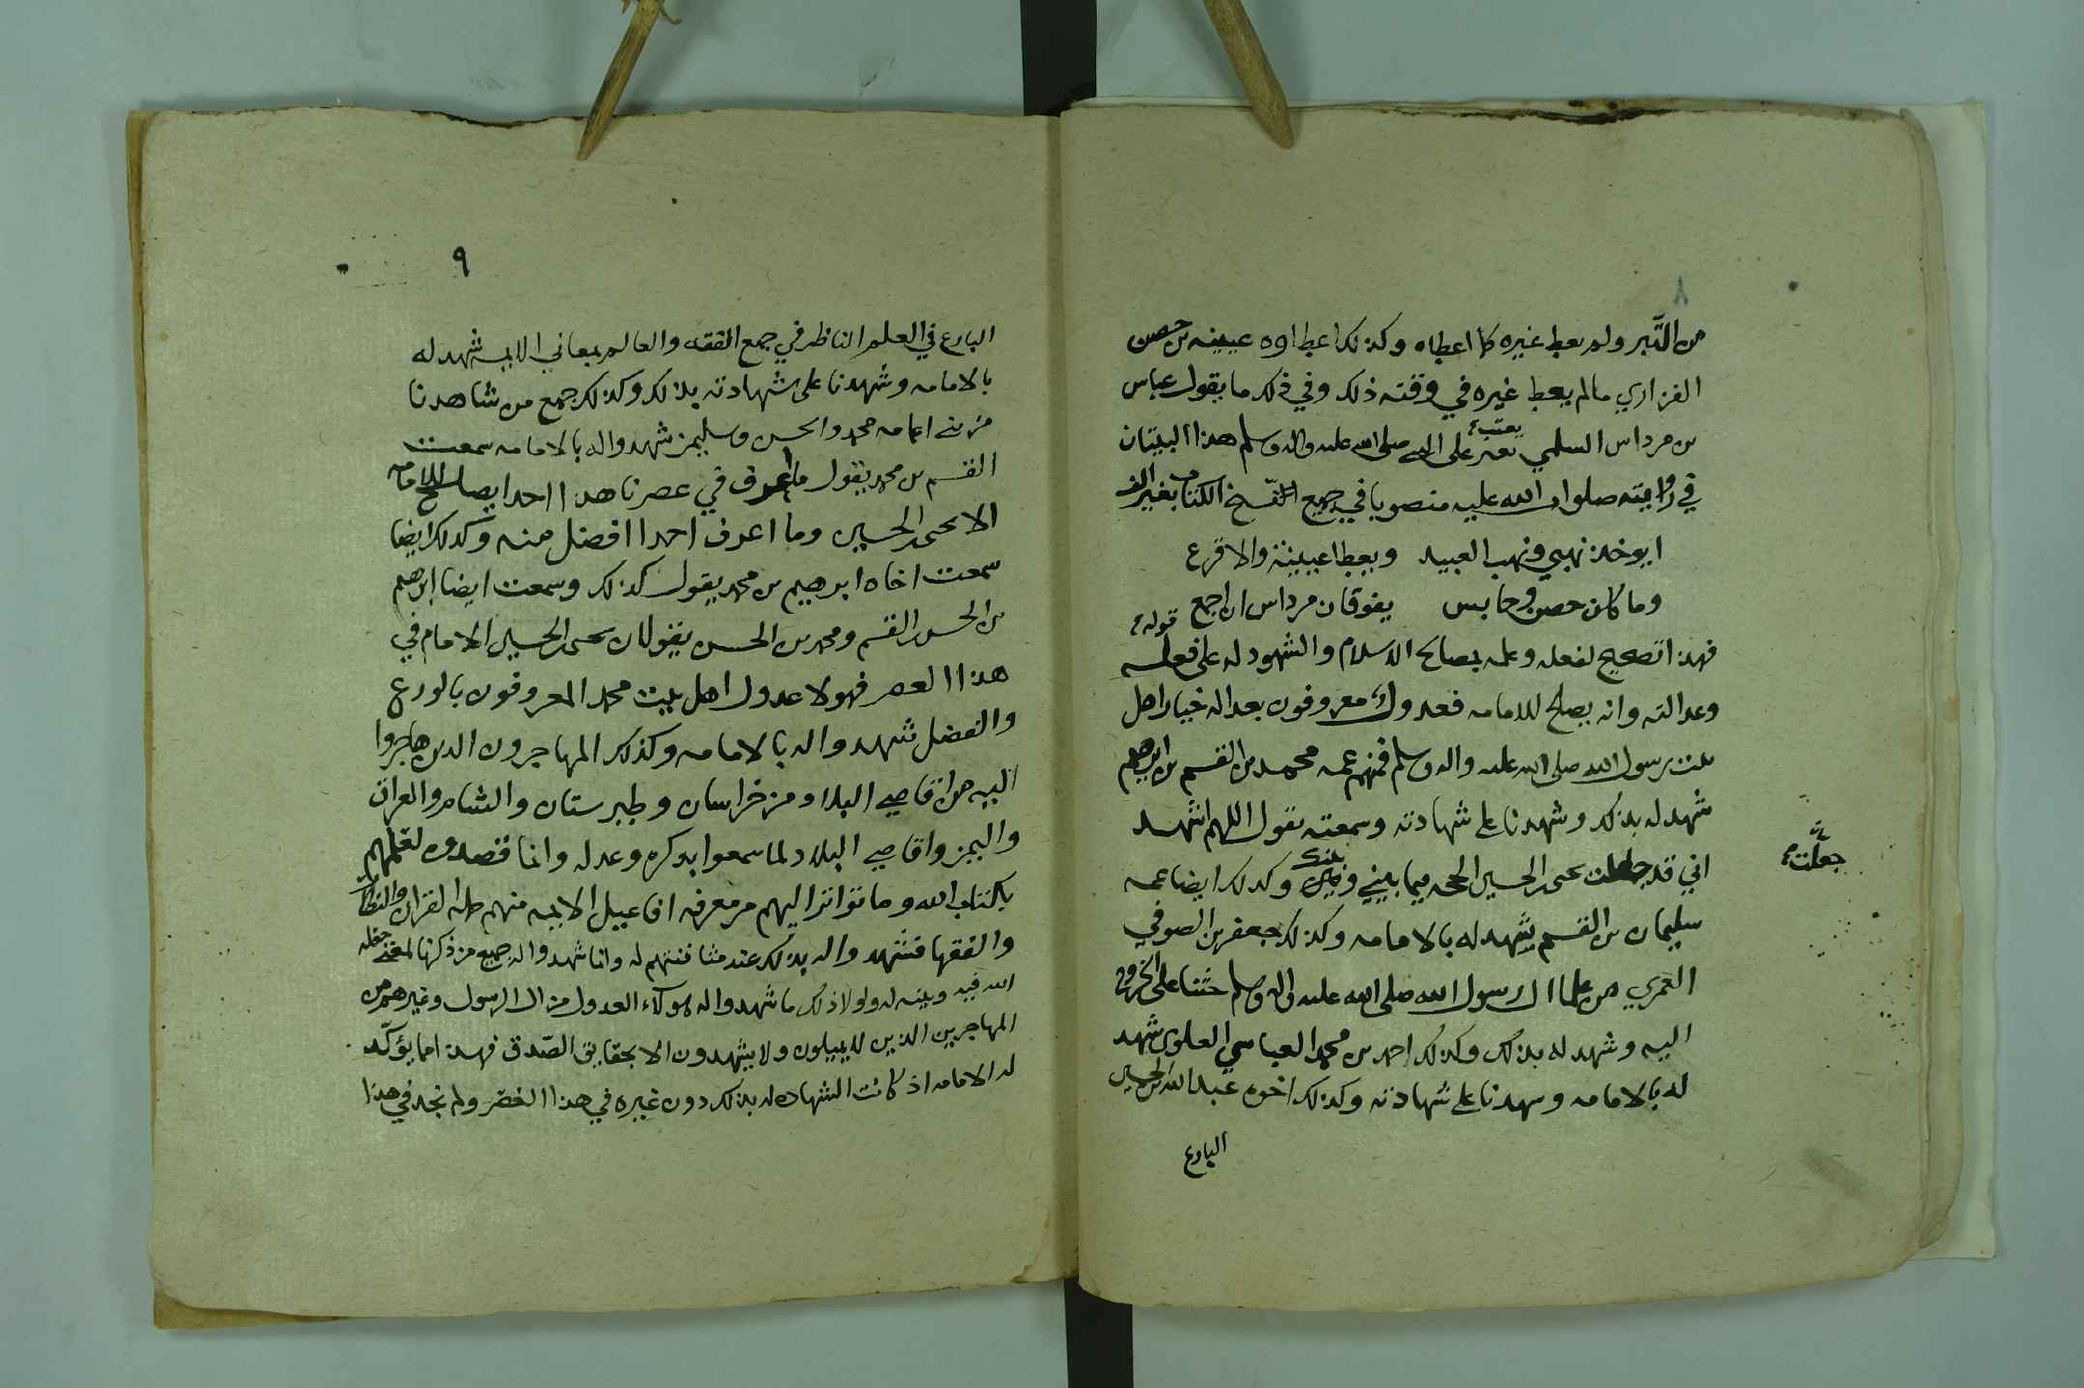 ٨
من التبر ولم يعط غيره كما اعطاه وكذلك اعطاوه عيينه بن حصن
الفزاري مالم يعط غيره في وقته ذلك وفي ذلك ما يقول عباس
بن مرداس السلمي يعتب على النبي صلى الله عليه واله وسلم هذا البيتان
في روايته صلوات الله عليه منصوبا في جميع النسخ الكتاب بغير الف
ايوخذ نهبي ونهب العبيد ويعطا عيينة والاقرع
وما كان حصن وحابس يفوقان مرداس ان اجمع
قوله
فهذا تصحيح لفعله وعلمه بصالح الاسلام والشهود له على فعله
وعدالته وانه يصلح للامامه فعدول معروفون بعداله خيار اهل
بيت رسول الله صلى الله عليه واله وسلم فمنهم عمه محمد بن القسم بن ابرهيم
شهد له بذلك وشهدنا على شهادته وسمعته يقول اللهم اشهد
اني قد جعلت يحيى بن الحسين الحجه فيما بيني وبينك وكذلك ايضا عمه
جعلت
سليمان بن القسم يشهد له بالامامه وكذلك جعفر بن الصوفي
العمري من علما ال رسول الله صلى الله عليه واله وسلم حثنا على الخروج
اليه وشهد له بذلك وكذلك احمد بن محمد العباسي العلوي شهد
له بالامامه وشهدنا على شهادته وكذلك اخوه عبد الله بن الحسين
البارع
٩
البارع في العلم الناظر في جمع الفقه والعالم بمعاني الايمة شهد له
بالامامه وشهدنا على شهادته بذلك وكذلك جمع من شاهدنا
من بني اعمامه محمد والحسن وسليمن شهدوا له بالامامه سمعت
القسم بن محمد يقول ما اعرف في عصرنا هذا احدا يصلح للامامه
الا يحيى بن الحسين وما اعرف احدا افضل منه وكذلك ايضا
سمعت اخاه ابرهيم بن محمد يقول كذلك وسمعت ايضا ابرهيم
بن الحسن بن القسم ومحمد بن الحسن يقولان يحيى بن الحسين الامام في
هذا العصر فهولا عدول اهل بيت محمد المعروفون بالورع
والفضل شهدوا له بالامامه وكذلك المهاجرون الذين هاجروا
اليه من اقاصي البلاد من خراسان وطبرستان والشام والعراق
واليمن واقاصي البلاد لما سمعوا بذكره وعدله وانما قصدوه لعلمهم
بكتاب الله وما تواتر اليهم من معرفه افاعيل الايمه منهم حمله القران والنظار
والفقها فشهدوا له بذلك عند مشافهتهم له وانما شهدوا له جميع من ذكرنا لمعنى جعله
الله فيه وبينه له ولولا ذلك ما شهدوا له هوكاء العدول من ال الرسول وغيرهم من
المهاجرين الذين لا يميلون ولا يشهدون الا بحقايق الصدق فهذا مما يؤكد
له الامامه اذ كانت الشهاده له بذلك دون غيره في هذا العصر ولم نجد في هذا